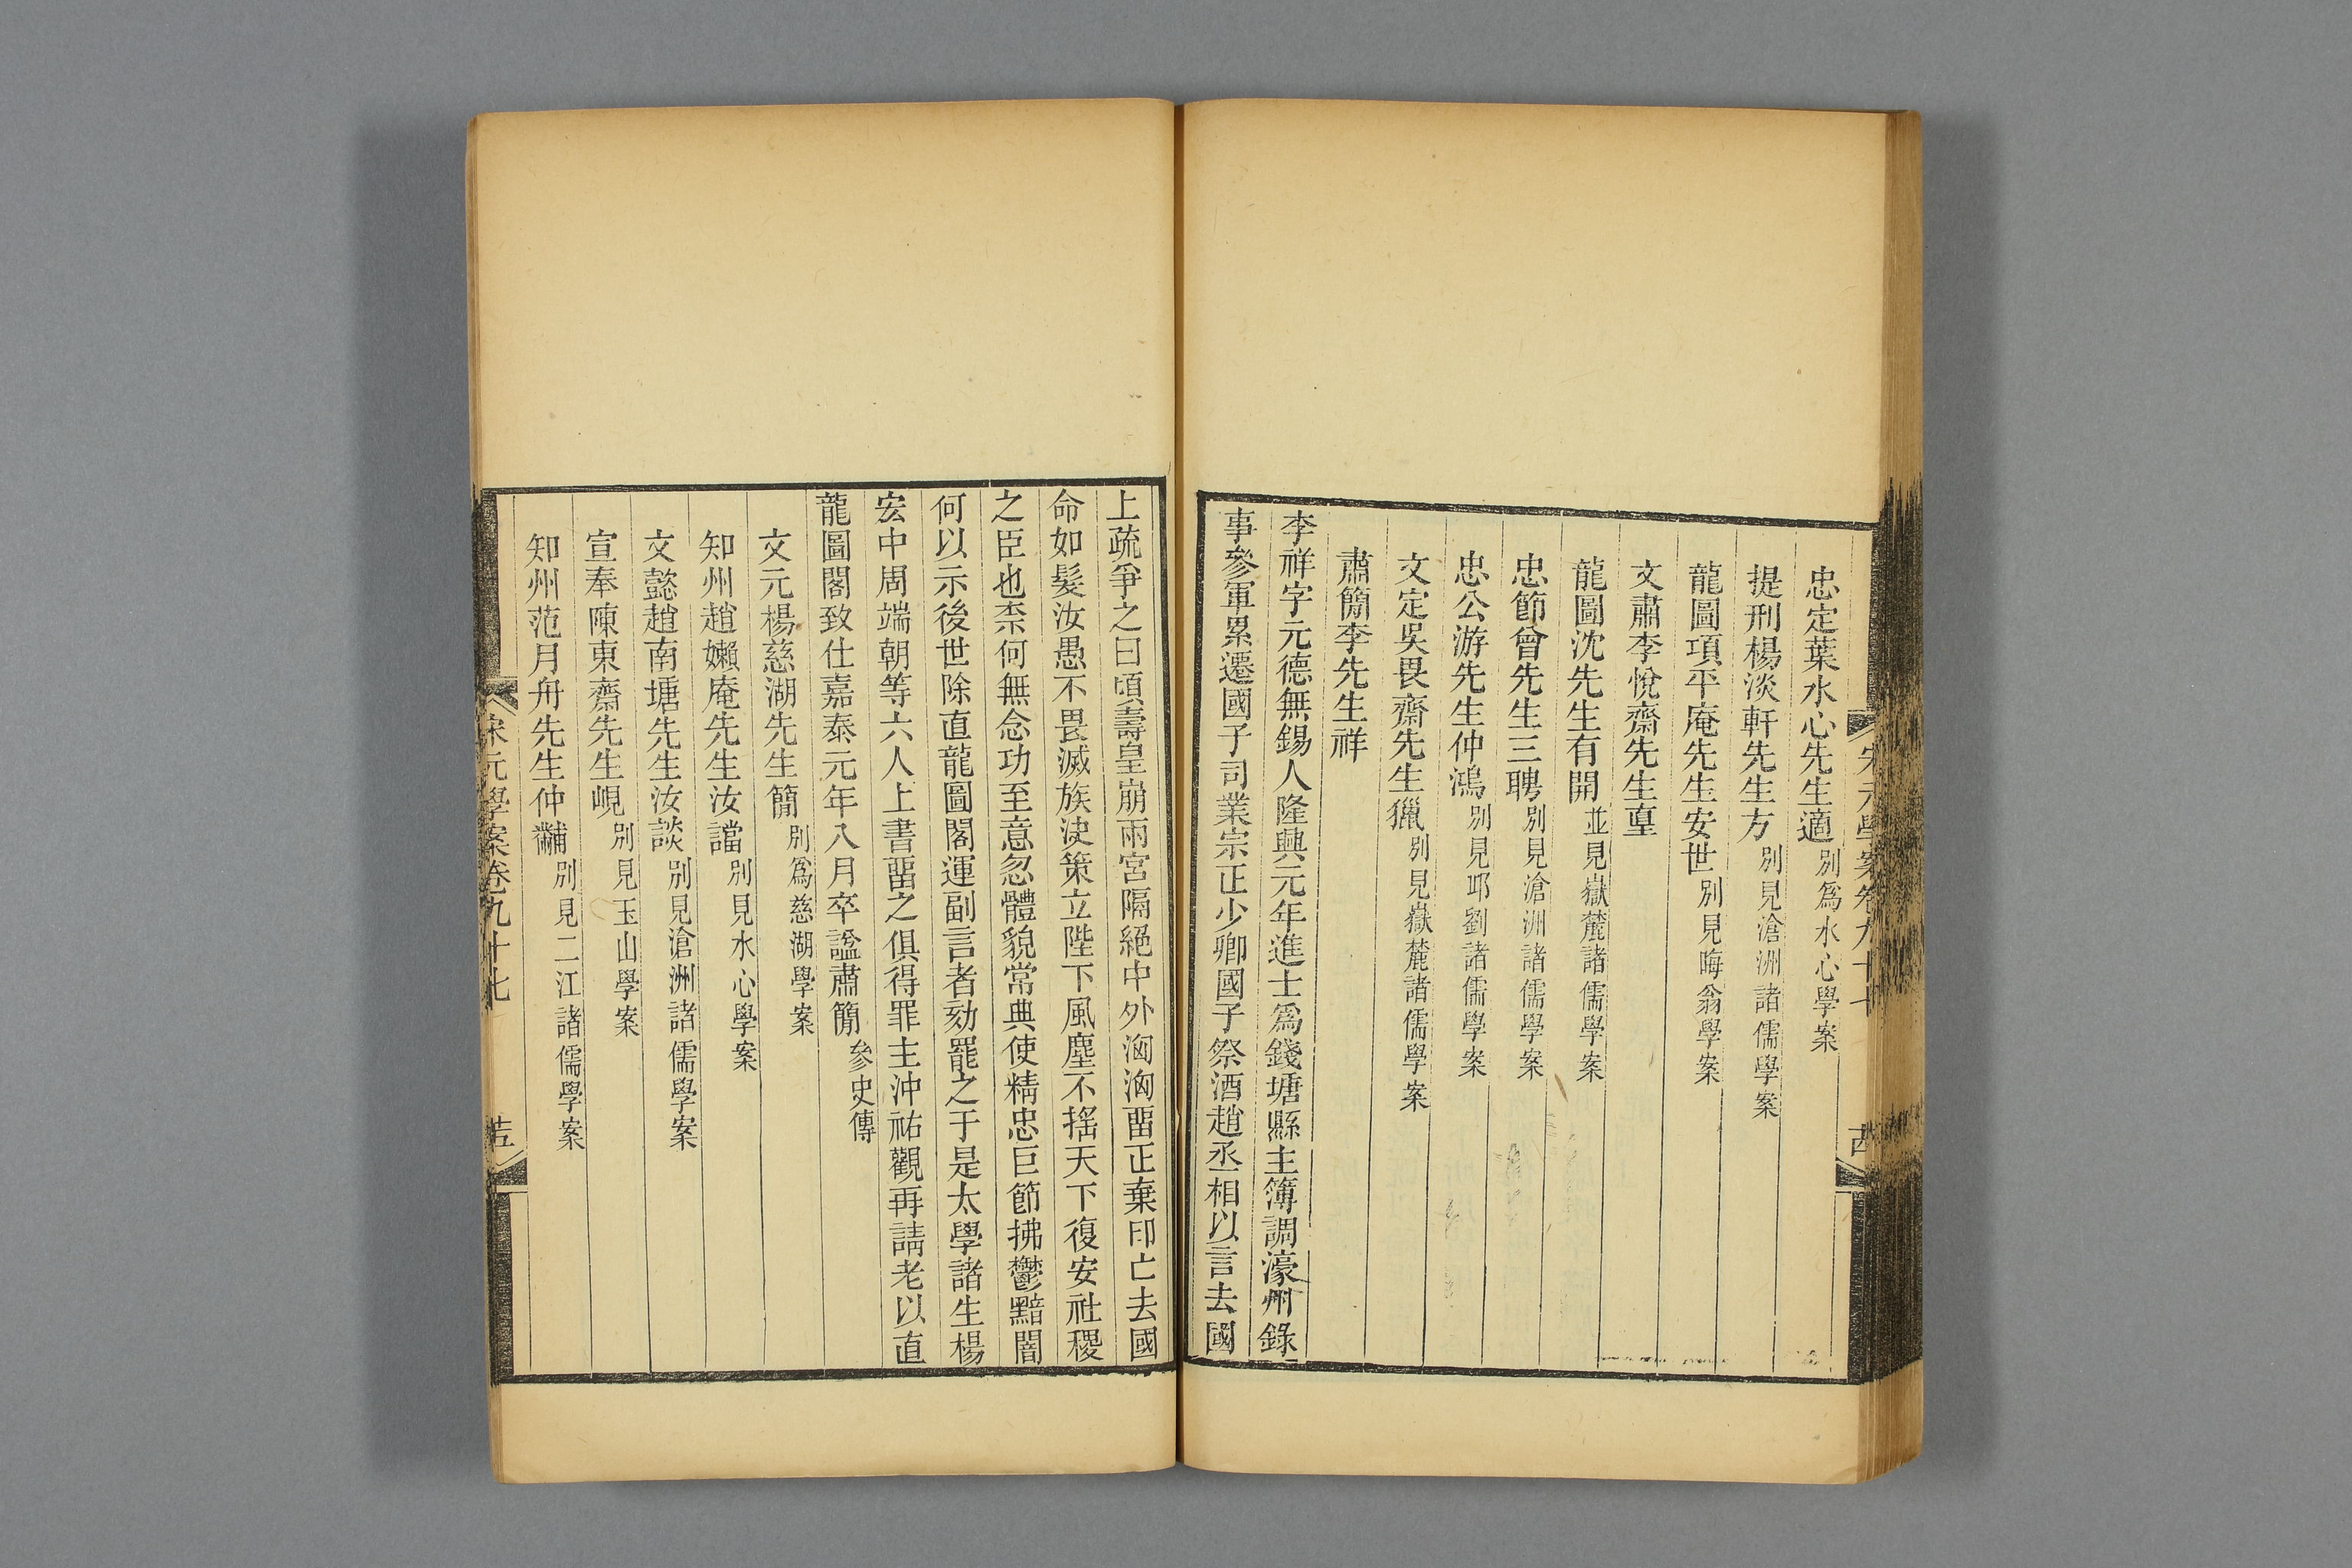 忠定葉水心先生適別爲水心學案
提刑楊淡軒先生方別見滄洲諸儒學案
龍圖項平庵先生安世別見晦翁學案
文肅李悅齋先生𡌴
龍圖沈先生有開並見嶽麓諸儒學案
忠節曾先生三聘別見滄洲諸儒學案
忠公游先生仲鴻別見邛劉諸儒學案
文定吳畏齋先生獵別見嶽麓諸儒學案
肅簡李先生祥
李祥字元德無錫人隆興元年進士爲錢塘縣主簿調濠州錄
事參軍累遷國子司業宗正少卿國子祭酒趙丞相以言去國
宋元學案卷九十七
上疏爭之曰頃壽皇崩兩宮隔絕中外洶洶畱正棄印亡去國
命如髮汝愚不畏滅族決策立陛下風塵不搖天下復安社稷
之臣也柰何無念功至意忽體貌常典使精忠巨節拂鬱黯闇
何以示後世除直龍圖閣運副言者劾罷之于是太學諸生楊
宏中周端朝等六人上書畱之俱得罪主沖祐觀再請老以直
龍圖閣致仕嘉泰元年八月卒諡肅簡參史傳
文元楊慈湖先生簡別爲慈湖學案
知州趙嬾庵先生汝讜別見水心學案
文懿趙南塘先生汝談別見滄洲諸儒學案
宣奉陳東齋先生峴別見玉山學案
知州范月舟先生仲黼別見二江諸儒學案
宋元學案卷九十七